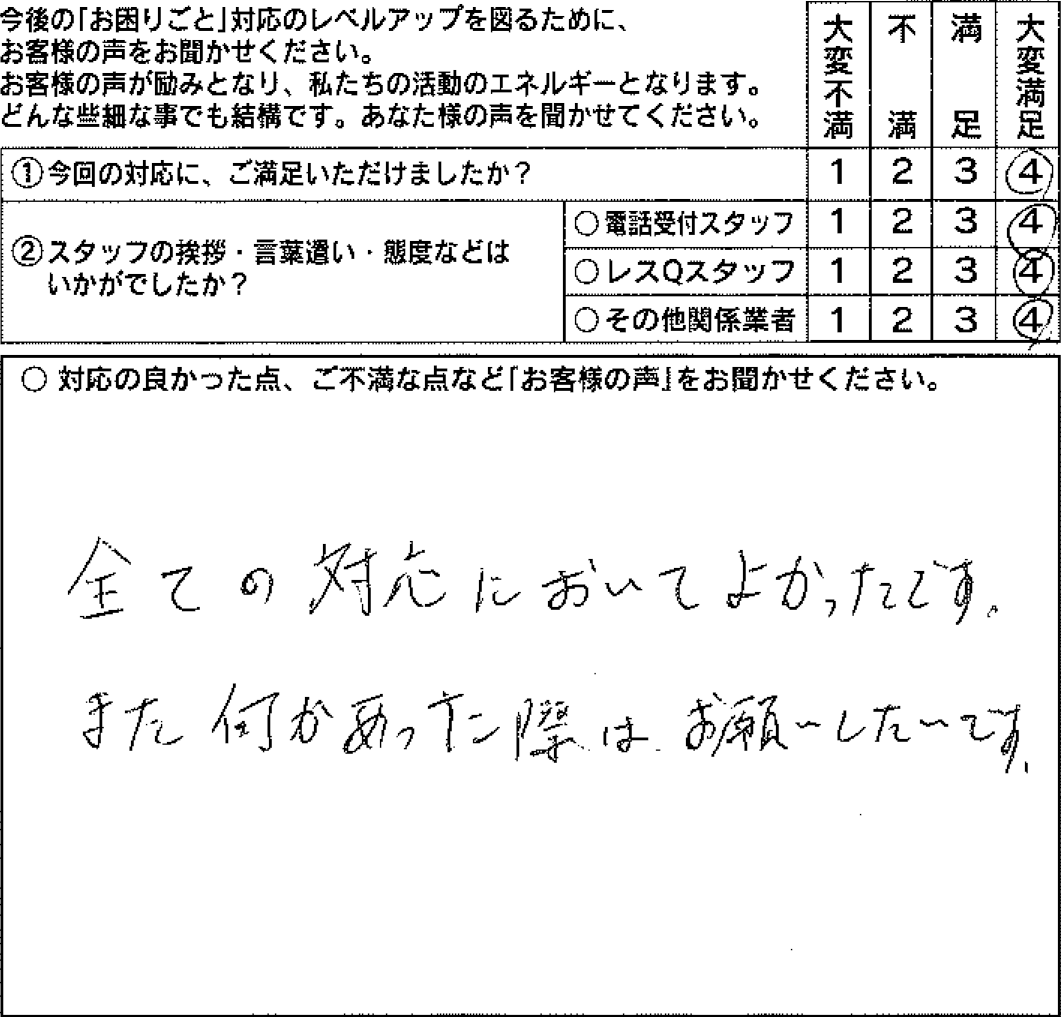 今後の｢お困りごと｣対応のレベルアップを図るために、
お客様の声をお聞かせください。
お客様の声が励みとなり、私たちの活動のエネルギーとなります。
どんな些細な事でも結構です。あなた様の声を聞かせてください。
大変不満 不満 満足 大変満足
①今回の対応に、ご満足いただけましたか？ 1 2 3 4
②スタッフの挨拶・言葉遣い・態度などは
いかがでしたか？
○電話受付スタッフ 1 2 3 4
○レスQスタッフ 1 2 3 4
○その他関係業者 1 2 3 4
○ 対応の良かった点、ご不満な点など｢お客様の声｣をお聞かせください。
全ての対応においてよかったです。
また何かあった際はお願いしたいです。